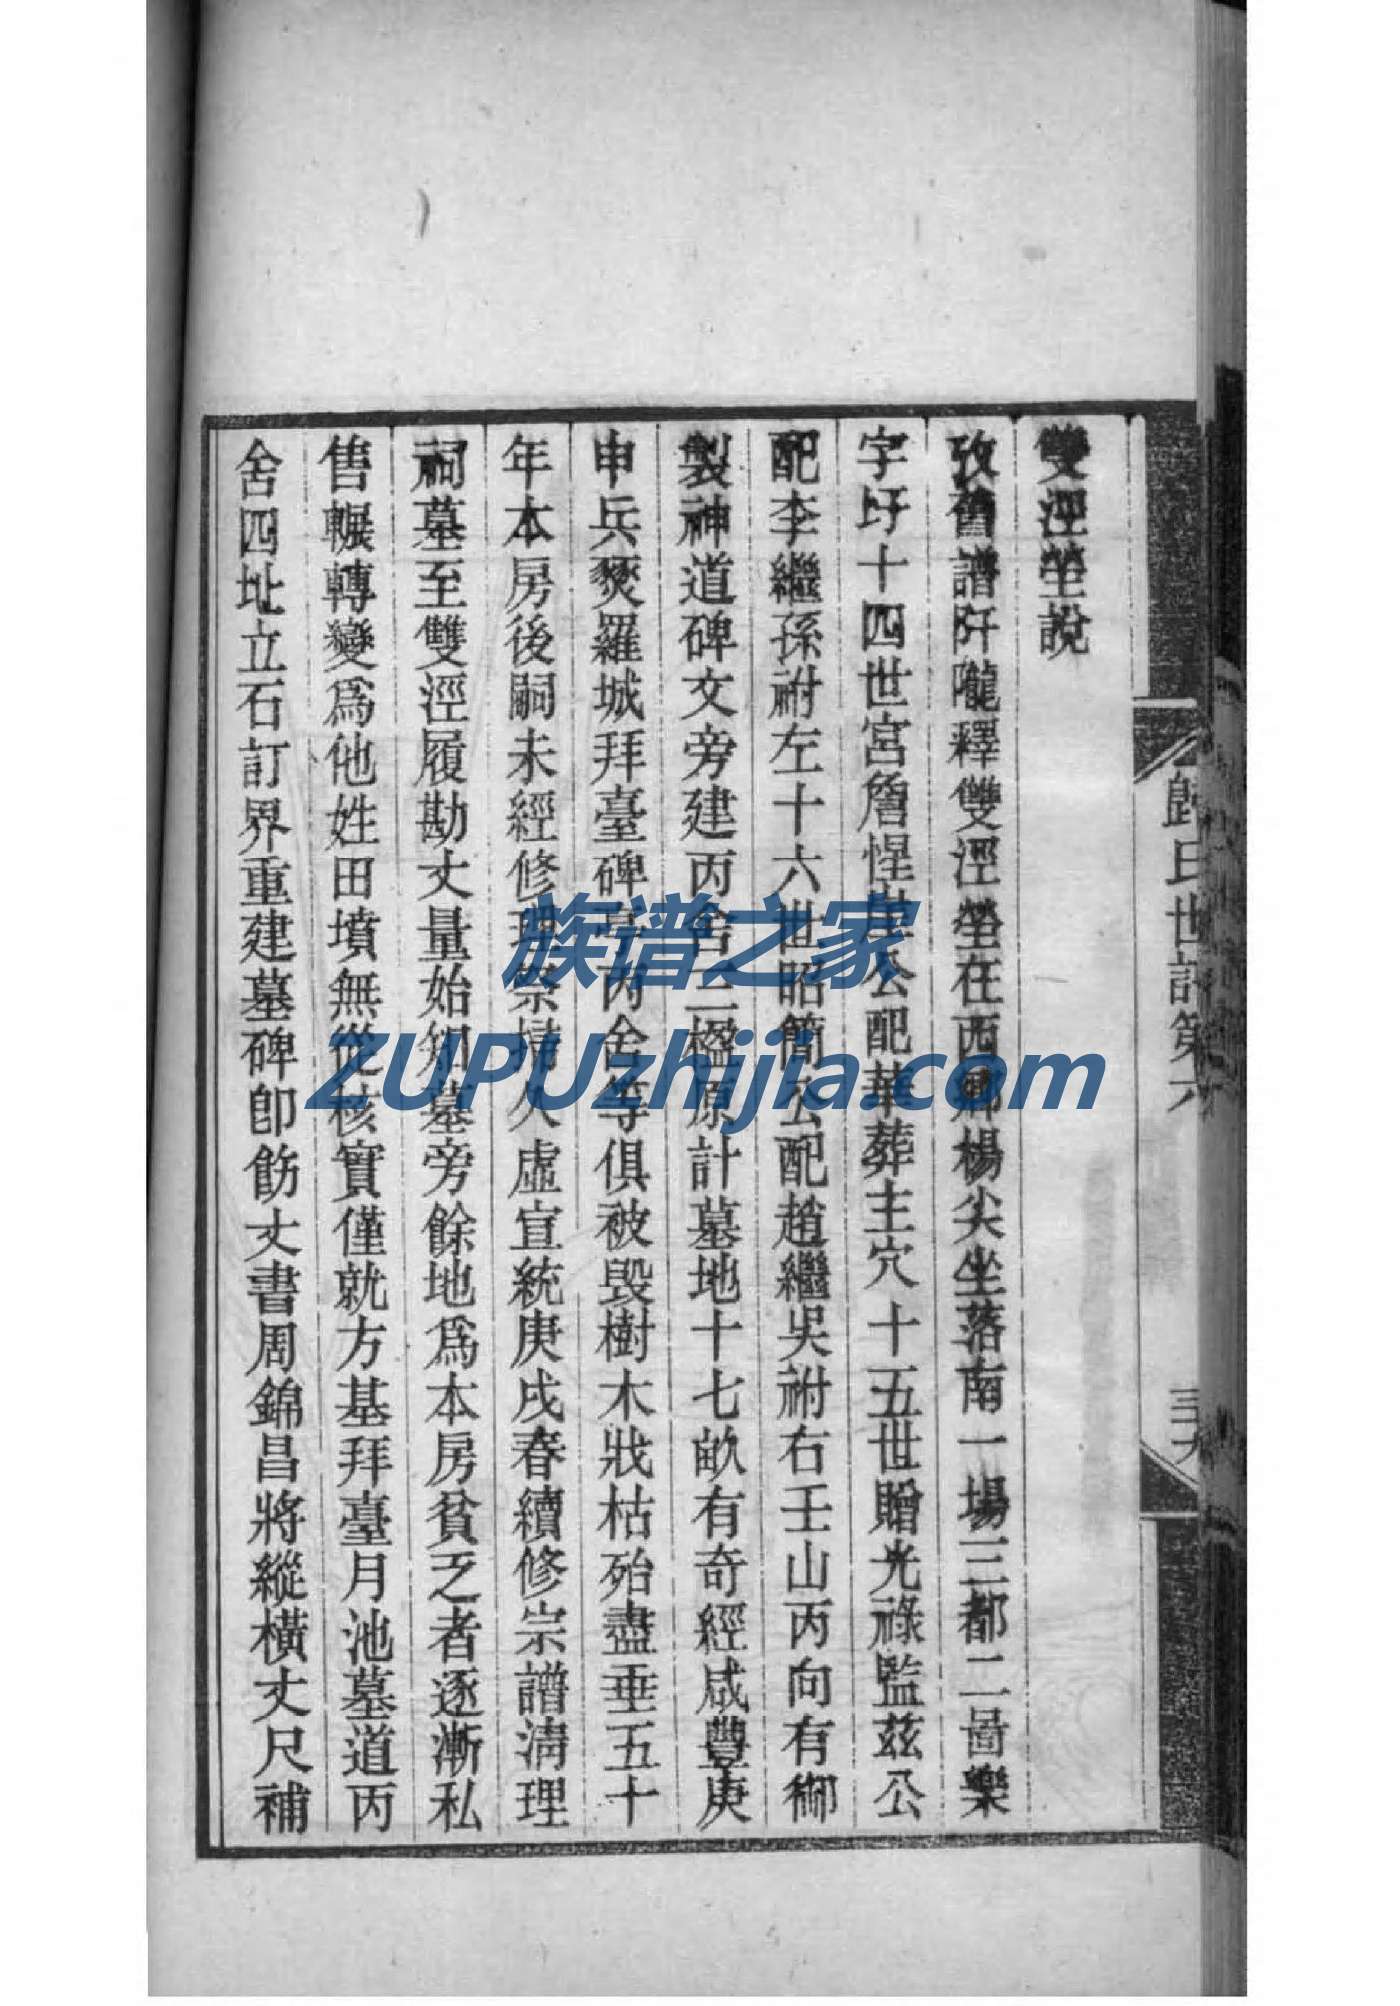 雙涇塋說
攷舊譜阡隴釋雙涇塋在西鄉楊尖坐落南一場三都二啚樂
字圩十四世宮詹惺崖公配華葬主穴十五世贈光祿監茲公
配李繼孫祔左十六世昭簡公配趙繼吳祔右壬山丙向有御
製神道碑文旁建丙舍三楹原計墓地十七畝有奇經咸豐庚
申兵燹羅城拜臺碑亭丙舍等俱被毀樹木戕枯殆盡垂五十
年本房後嗣未經修理祭掃久虛宣統庚戌春續修宗譜淸理
祠墓至雙涇履勘丈量始知墓旁餘地爲本房貧乏者逐漸私
售輾轉變爲他姓田墳無從核實僅就方基拜臺月池墓道丙
舍四址立石訂界重建墓碑卽飭丈書周錦昌將縱橫丈尺補
歸氏世譜第六
族谱之家
ZUPUzhijia.com